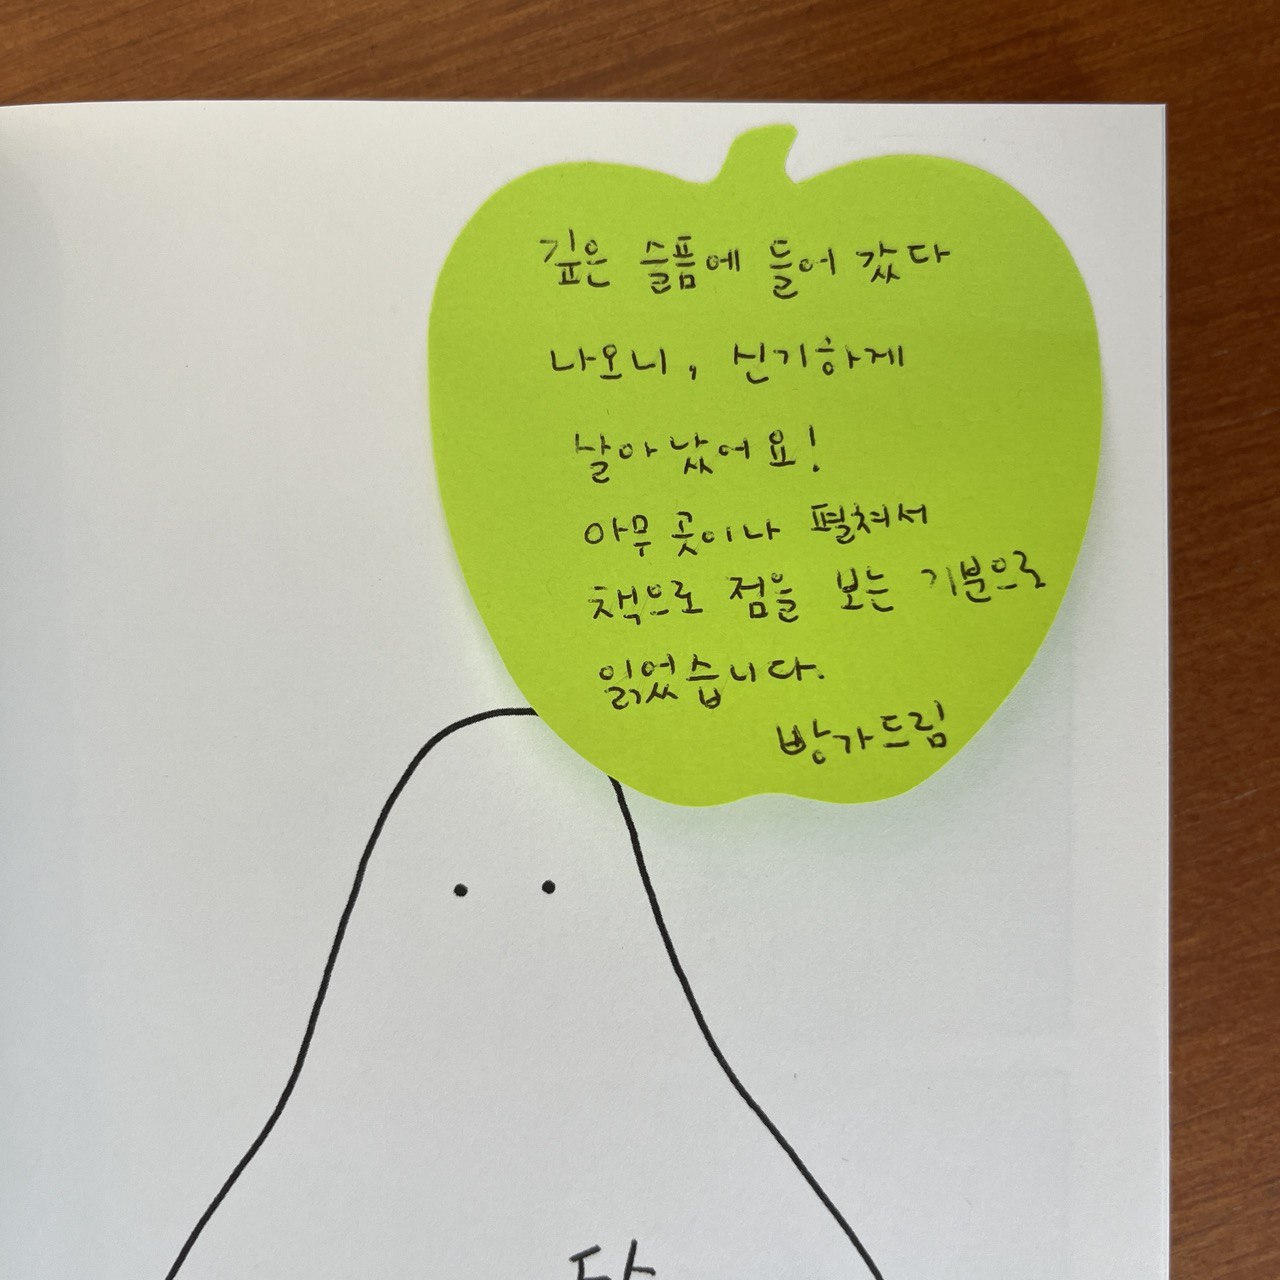 깊은 슬픔에 들어 갔다
나오니, 신기하게
살아났어요!
아무 곳이나 펼쳐서
책으로 점을 보는 기분으로
읽었습니다.
방가드림